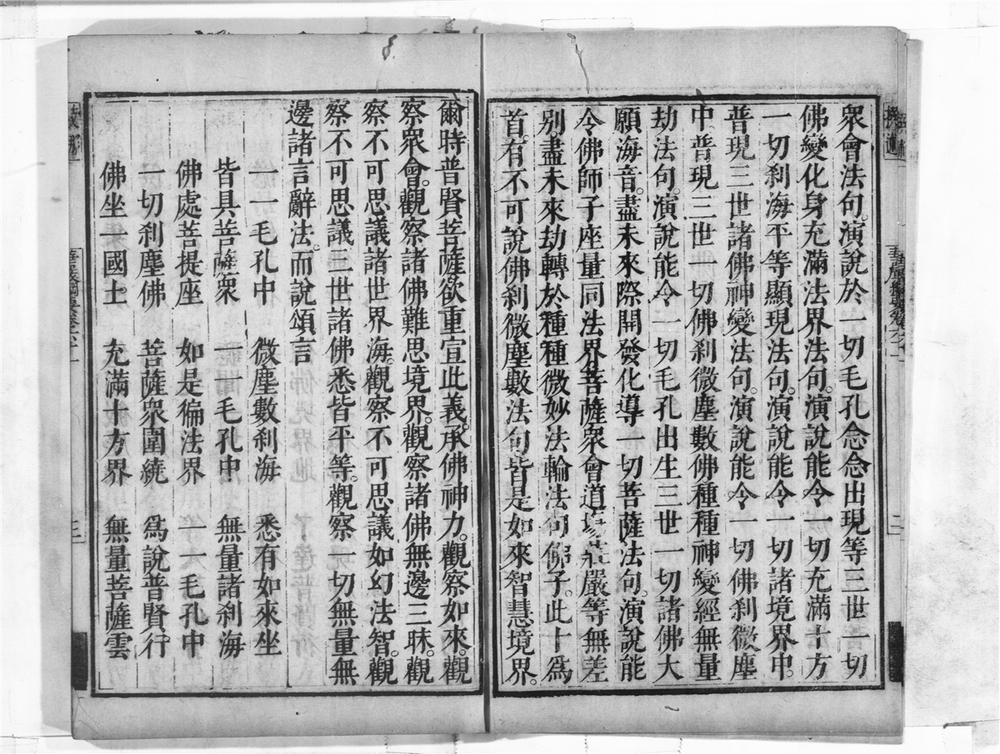 衆會法句。演說於一切毛孔念念出現等三世一切
佛變化身充滿法界法句。演說能令一切充滿十方
一切刹海平等顯現法句。演說能令一切諸境界中。
普現三世諸佛神變法句。演說能令一切佛刹微塵
中普現三世一切佛刹微塵數佛種種神變經無量
劫法句。演說能令一切毛孔出生三世一切諸佛大
願海音。盡未來際開發化導一切菩薩法句。演說能
令佛師子座量同法界菩薩衆會道場莊嚴等無差
別盡未來劫轉於種種微妙法輪法句佛子。此十爲
首有不可說佛刹微塵數法句皆是如來智慧境界。
爾時普賢菩薩欲重宣此義。承佛神力。觀察如來。觀
察衆會。觀察諸佛難思境界。觀察諸佛無邊三昧。觀
察不可思議諸世界海觀察不可思議如幻法智。觀
察不可思議三世諸佛悉皆平等。觀察一切無量無
邊諸言辭法。而說頌言
一一毛孔中　微塵數刹海　悉有如來坐
皆具菩薩衆　一一毛孔中　無量諸刹海
佛處菩提座　如是徧法界　一一毛孔中
一切刹塵佛　菩薩衆圍繞　爲說普賢行
佛坐一國土　充滿十方界　無量菩薩雲
二
三